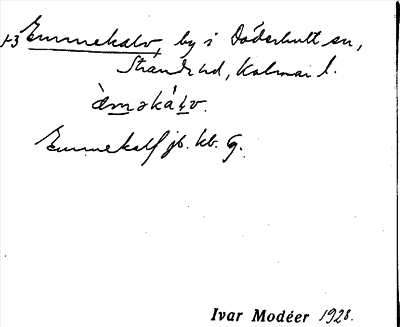 +3 Emmekalv, by i Döderhult sn,
Strands hd, Kalmar l.
æ̀məkálv.
Emmekalf jb. kb. G.
Ivar Modéer 1928.